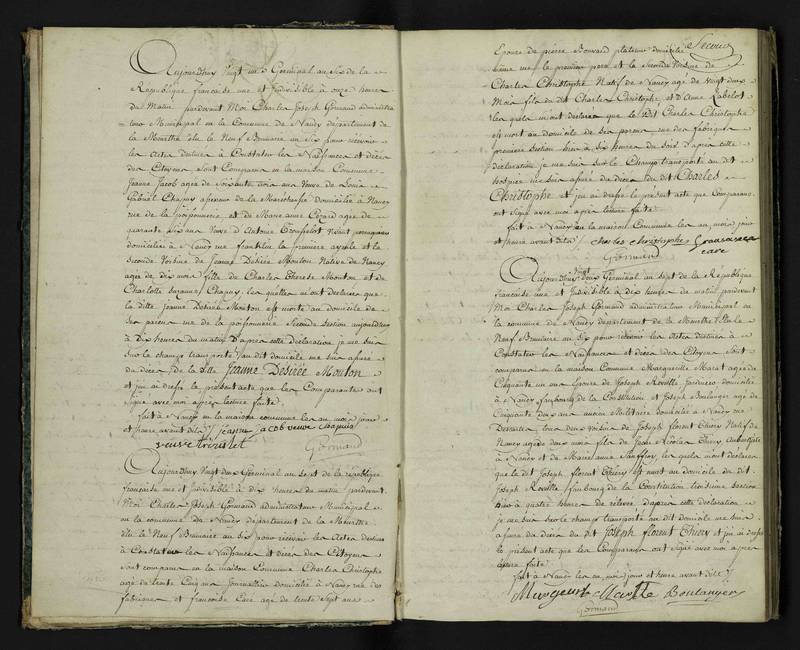 Aujourdhuy Vingt un Germinal an Six de la
République française une et Indivisible a onze heures
du Matin pardevant Moi Charles Joseph Gormand administra
teur Municipal en la Commune de Nancy département de
la Meurthe élu le Neuf Brumaire an Six pour recevoir
les Actes destinés à Constater les Naissances et décès
des Citoyens sont Comparus en la maison Commune
Jeanne Jacob agée de Soixante ans Veuve de Louis
Gabriel Chapuy domiciliée à Nancy
rue de la poissonnerie et de Marianne agée de
quarante Six ans Veuve d'Antoine
domiciliée à Nancy rue la première ayeule et la
Seconde Voisine de Jeanne Désirée Mouton Native de Nancy
agée de dix mois fille de Charles Mouton et de
Charlotte Suzanne Chapuy, les quelles m'ont déclaré que
la ditte Jeanne Désirée Mouton est morte au domicile de
ses parens rue de la poissonnerie Seconde Section aujourdhuy
à Six heures du matin D'après cette déclaration je me suis
sur le champ transporté au dit domicile me suis assuré
du décès de la ditte Jeanne Désirée Mouton
et j'ai dressé le présent acte que les Comparantes ont
Signé avec moi après lecture faitte
fait à Nancy en la maison commune les an mois jour
et heure avant dits / jeanne jacob veuve chapuis
veuve
Gormand
Aujourdhuy Vingt deux Germinal an Sept de la république
française une et Indivisible à dix heures du matin pardevant
Moi Charles Joseph Gormand administrateur Municipal
en la commune de Nancy département de la Meurthe
élu le Neuf Brumaire an Six pour recevoir les Actes destinés
à Constater les Naissances et décès des Citoyens
sont comparus en la maison Commune Charles Christophe
agé de trente Cinq ans Journallier domicilié à Nancy rue des
fabriques et françoise agée de trente Sept ans
Epouse de pierre domicilié
même rue le premier pere et la Seconde Voisine de
Charles Christophe Natif de Nancy agé de Vingt deux
Mois fils du dit Charles Christophe et d'Anne Labelot
les quels m'ont déclaré que le dit Charles Christophe
est mort au domicile de ses parens rue des fabriques
première Section hier à Six heures du Soir d'après cette
déclaration je me suis sur le Champ transporté au dit
me suis assuré du décès du dit Charles
Christophe et j'ai dressé le présent acte que Comparans
ont Signé avec moi après lecture faite
fait à Nancy en la maison Commune les an, mois jour
et heure avant dits / charles christophe
Gormand
Aujourdhuy Vingt deux Germinal an Sept de la République
française une et Indivisible à dix heures du matin pardevant
Moi Charles Joseph Gormand administrateur Municipal en
la commune de Nancy département de la Meurthe élu le
Neuf Brumaire an Six pour recevoir les Actes destinés à
Constater les Naissances et décès des Citoyens Sont
comparus en la maison Commune Marguerite Marat agée de
Cinquante un ans Epouse de Joseph Roville Jardinier domicilié
à Nancy faubourg de la Constitution et Joseph Boulanger agé de
Cinquante deux ans ancien Militaire domicilié à Nancy rue
tous deux Voisins de Joseph florent Thiery Natif de
Nancy agé de deux mois fils de Jean Nicolas Thiery Aubergiste
à Nancy et de Marie Anne les quels m'ont déclaré
que le dit Joseph florent Thiery est mort au domicile du dit
Joseph Roville faubourg de la Constitution troisième Section
hier à quatre heures de relevée d'après cette déclaration
je me suis sur le champ transporté au dit domicile me suis
assuré du décès du dit Joseph florent Thiery et j'ai dressé
le présent acte que les Comparans ont Signé avec moi après
lecture faite
fait à Nancy les an, mois, jour et heure avant dits /
Boulanger
Gormand